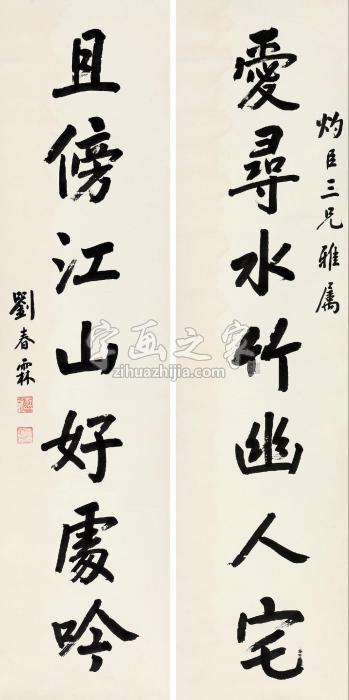 灼臣三兄雅属
愛尋水竹幽人宅
且傍江山好處吟
劉春霖
字画之家
zihuazhijia.com